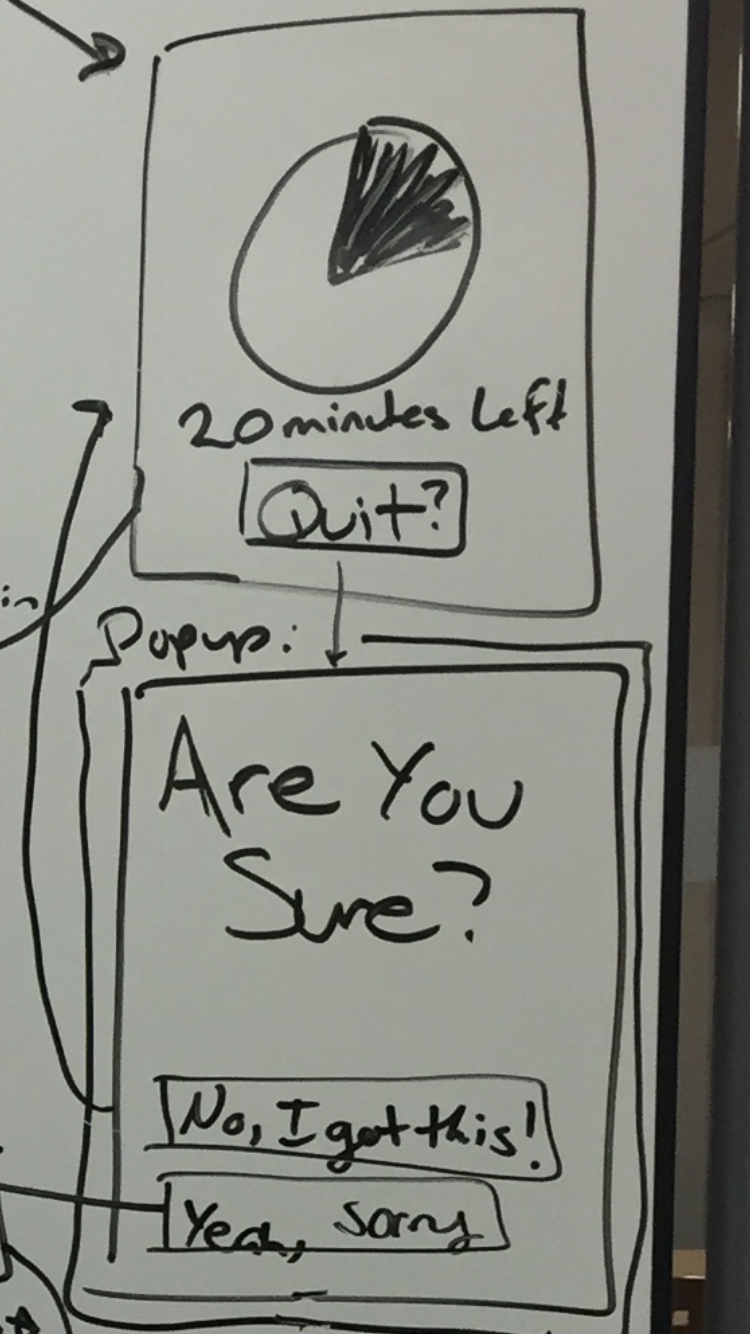 20 minutes Left
Quit?
in
Popup:
Are You
Sure?
No, I got this!
Yeah, Sorry